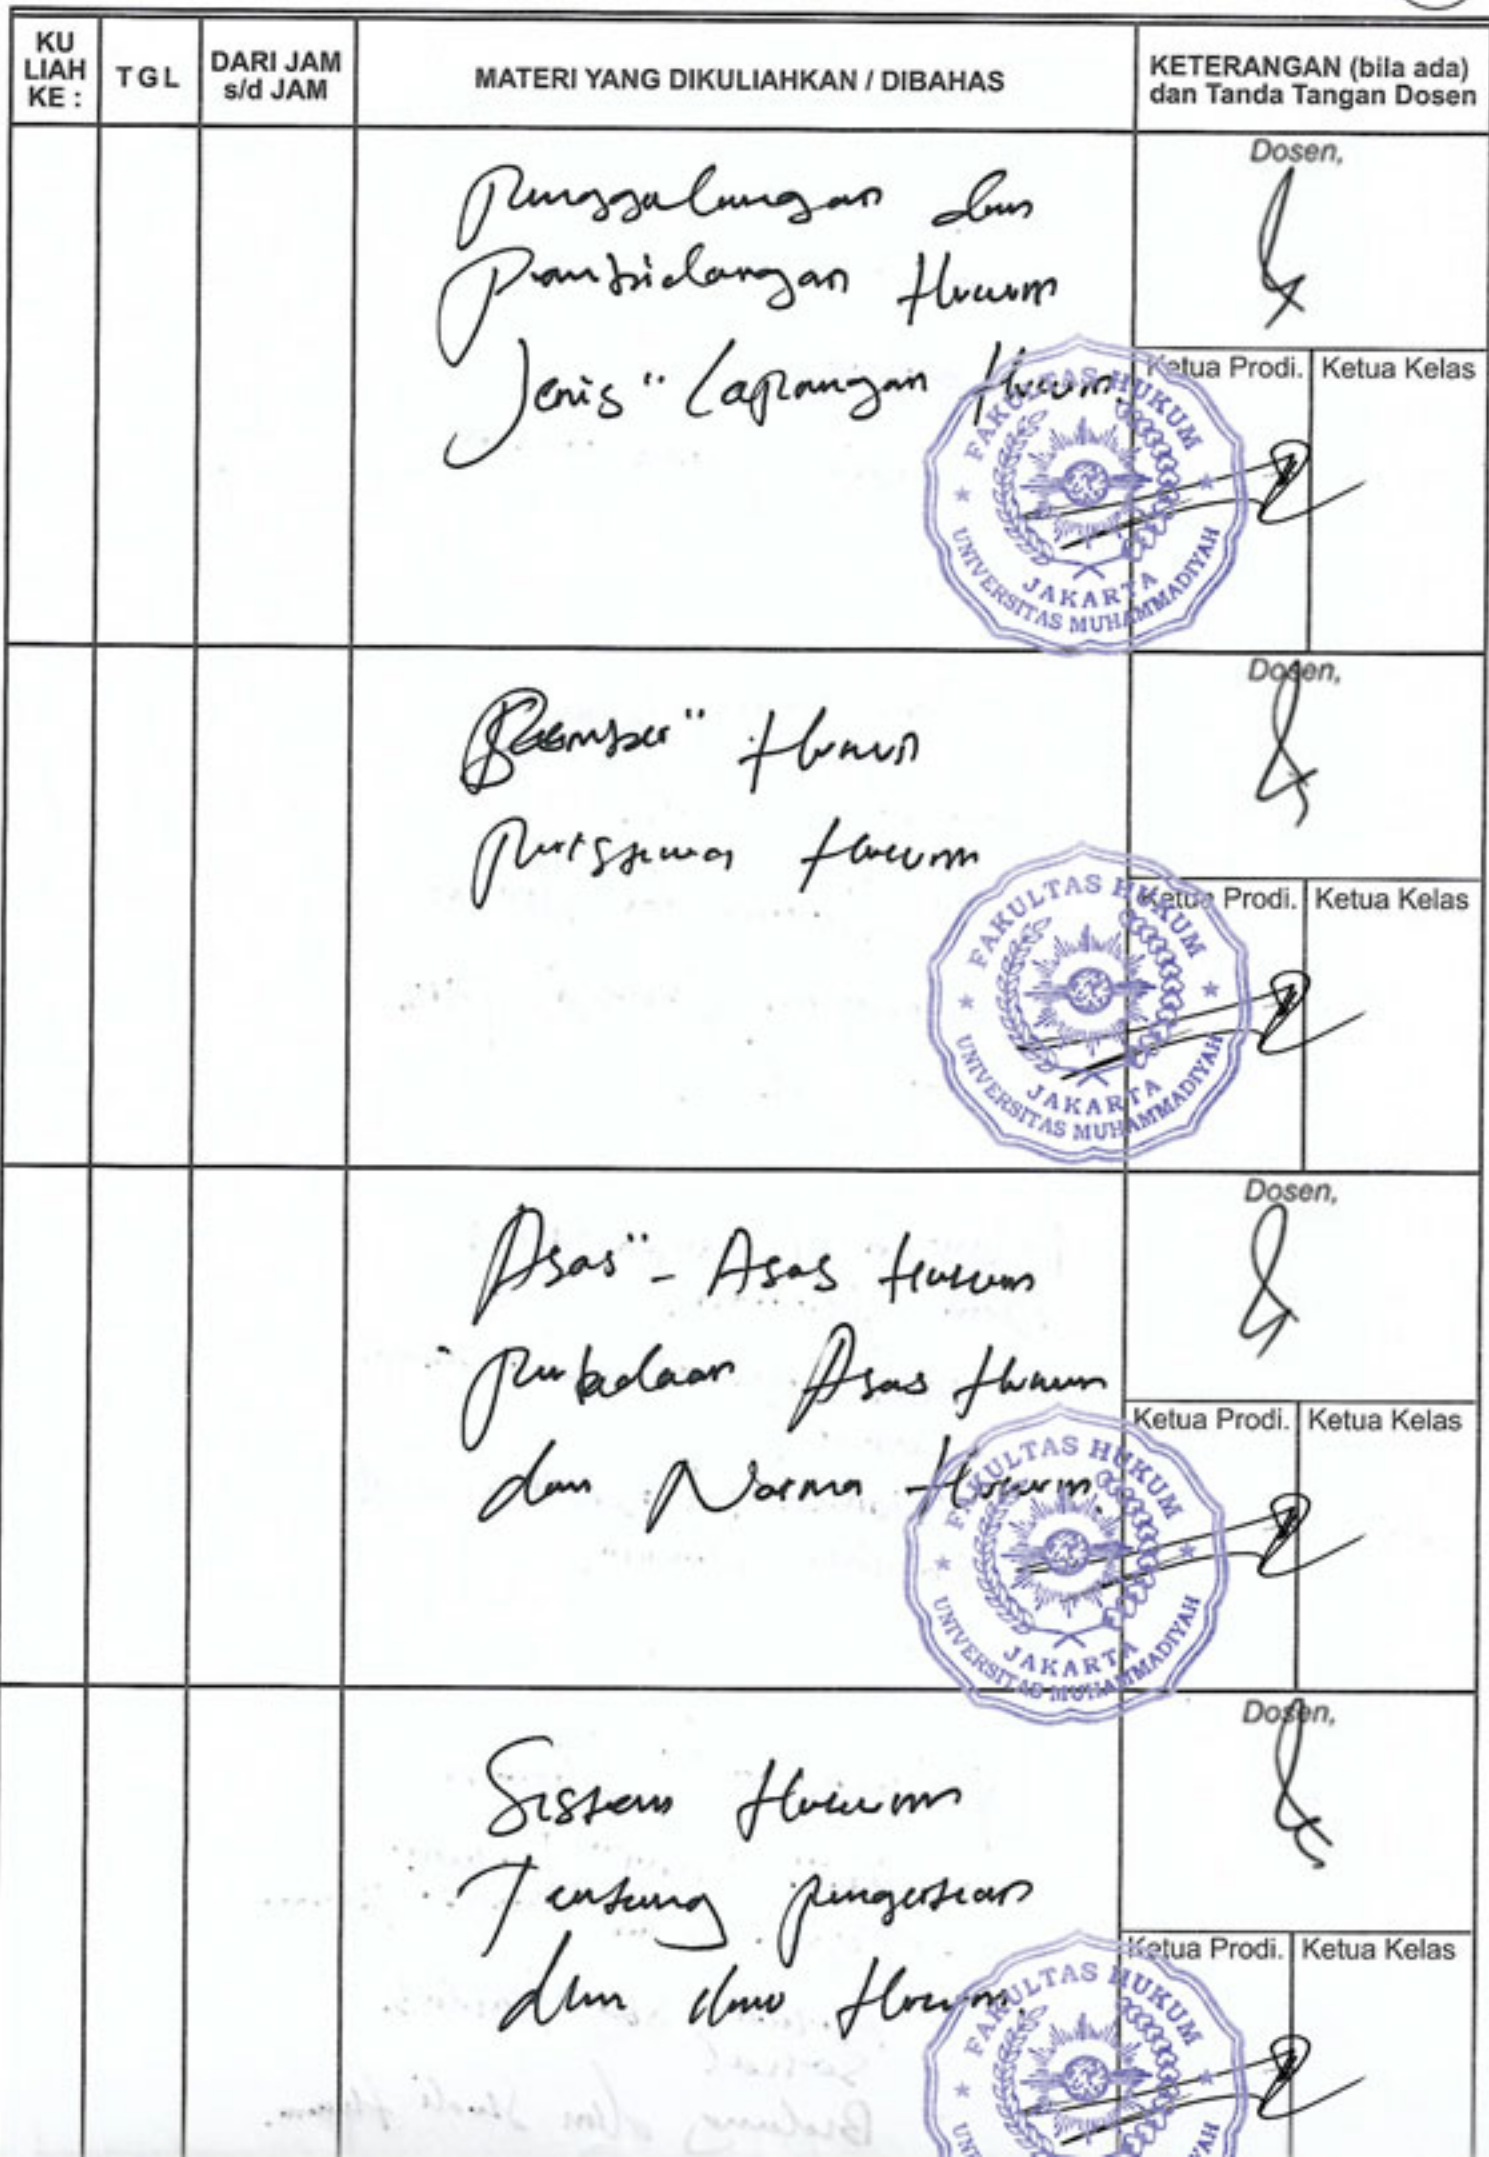 KU LIAH KE :
TGL
DARI JAM s/d JAM
MATERI YANG DIKULIAHKAN / DIBAHAS
KETERANGAN (bila ada) dan Tanda Tangan Dosen
Penggolongan dan
Pembidangan Hukum
Jenis" Lapangan Hukum.
Dosen,
Ketua Prodi.
Ketua Kelas
FAKULTAS HUKUM
UNIVERSITAS MUHAMMADIYAH
JAKARTA
Hukum
Peristiwa Hukum
Dosen,
Ketua Prodi.
Ketua Kelas
FAKULTAS HUKUM
UNIVERSITAS MUHAMMADIYAH
JAKARTA
Asas" - Asas Hukum
Perbedaan Asas Hukum
dan Norma Hukum.
Dosen,
Ketua Prodi.
Ketua Kelas
FAKULTAS HUKUM
UNIVERSITAS MUHAMMADIYAH
JAKARTA
Sistem Hukum
Tentang pengertian
dan ilmu Hukum.
Dosen,
Ketua Prodi.
Ketua Kelas
FAKULTAS HUKUM